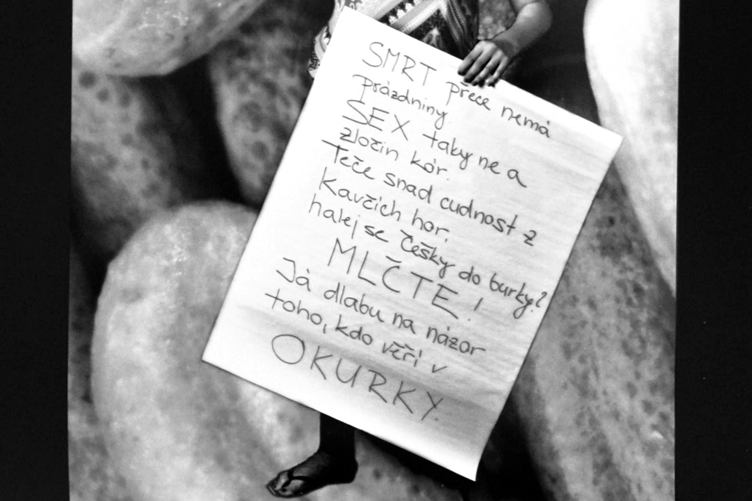 SMRT přece nemá
prázdniny
SEX taky ne a
zločin kór.
Teče snad cudnost z
Kavčích hor,
halej se Češky do burky?
MLČTE!
Já dlabu na názor
toho, kdo věří v
OKURKY.